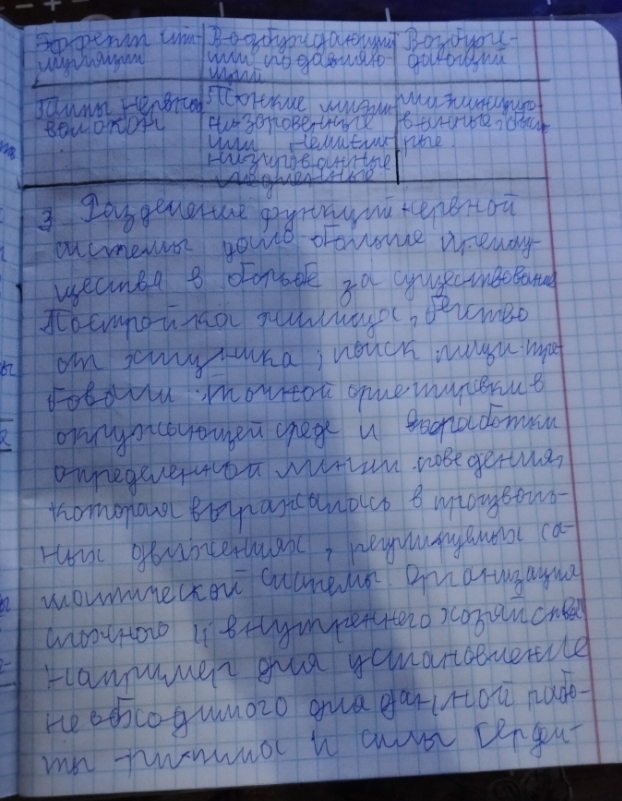 Эффект ин-
нервации
Возбуждающий
или подавляю-
щий
Возбуж-
дающий
Типы нервных
волокон
Тонкие миели-
низированные
или немиели-
низированные
медленные
быст-
рые
3 Разделение функций нервной
системы дало больше преиму-
щества в борьбе за существование
Постройка жилища, бегство
от хищника, поиск пищи тре-
бовали точной ориентировки в
окружающей среде и выработки
определенной линии поведения,
которая выражалась в произволь-
ных движениях, регулируемых со-
матической системы. Организация
сложного и внутреннего хозяйства
Например для установление
необходимого для данной рабо-
ты ритма и силы сердеч-